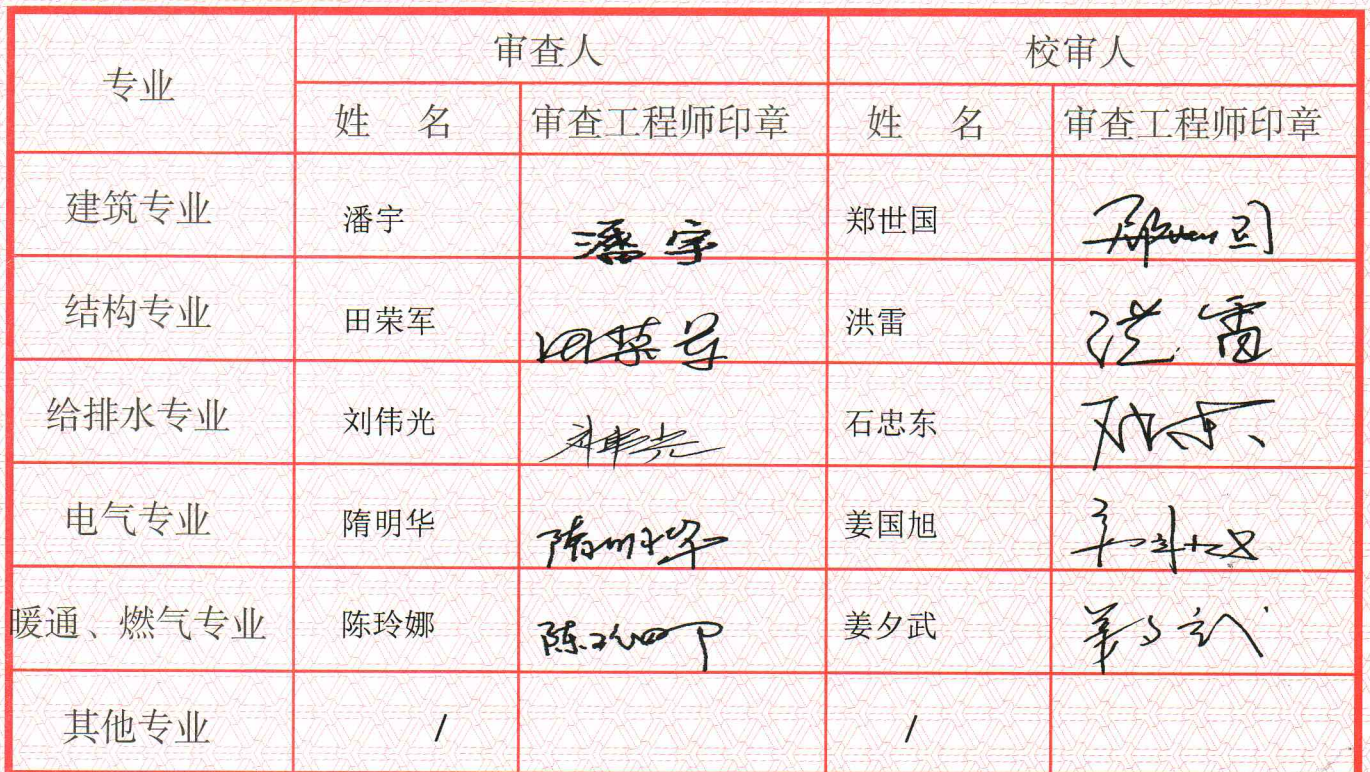 专业 审查人 校审人
姓 名 审查工程师印章 姓 名 审查工程师印章
建筑专业 潘宇 潘宇 郑世国 郑世国
结构专业 田荣军 田荣军 洪雷 洪雷
给排水专业 刘伟光 刘伟光 石忠东
电气专业 隋明华 隋明华 姜国旭 姜国旭
暖通、燃气专业 陈玲娜 陈玲娜 姜夕武 姜夕武
其他专业 / /